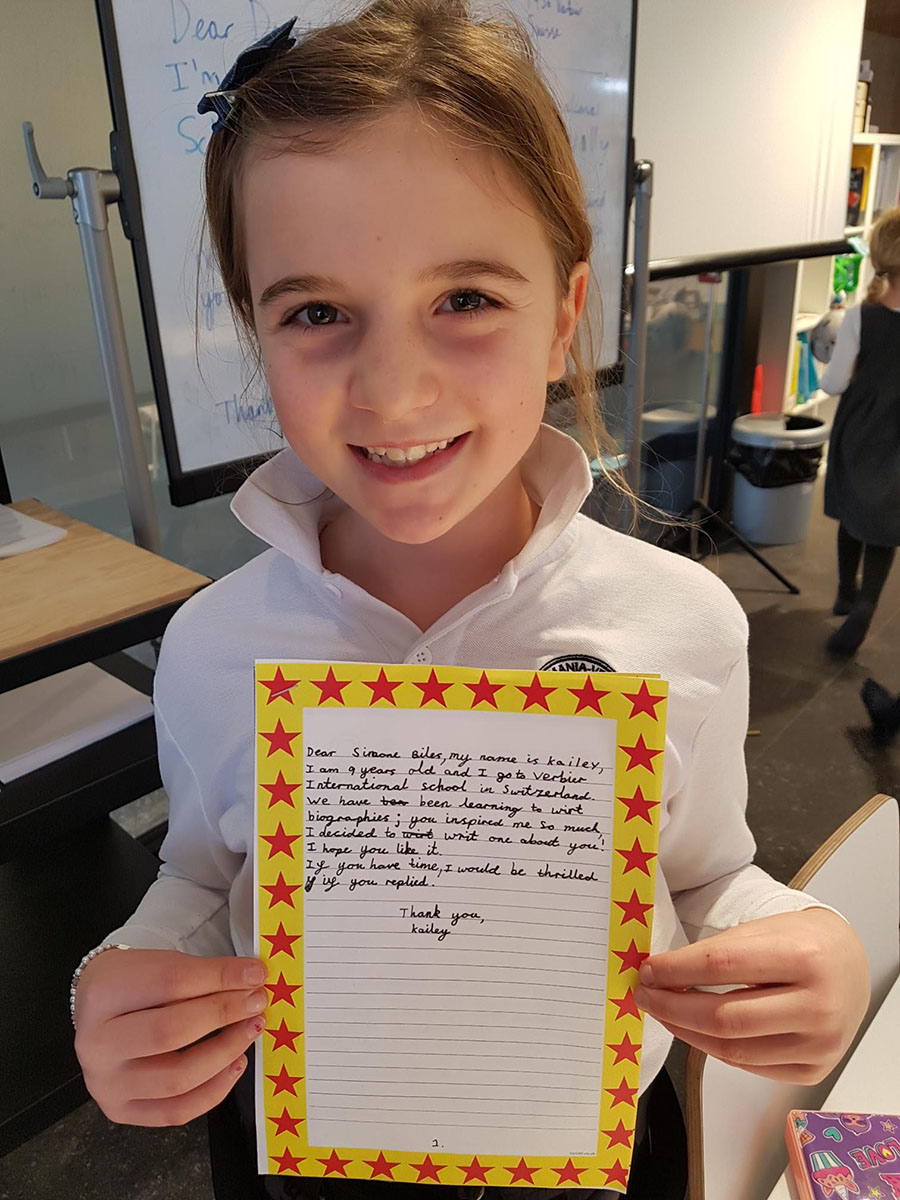 Dear
I'm
Thank
ANIA-V
Dear Simone Biles, my name is Kailey,
I am 9 years old and I go to Verbier
International school in Switzerland.
We have been learning to wirt
biographies; you inspired me so much,
I decided to wirt writ one about you!
I hope you like it.
If you have time, I would be thrilled
if you replied.
Thank you,
Kailey
1.
LOVE